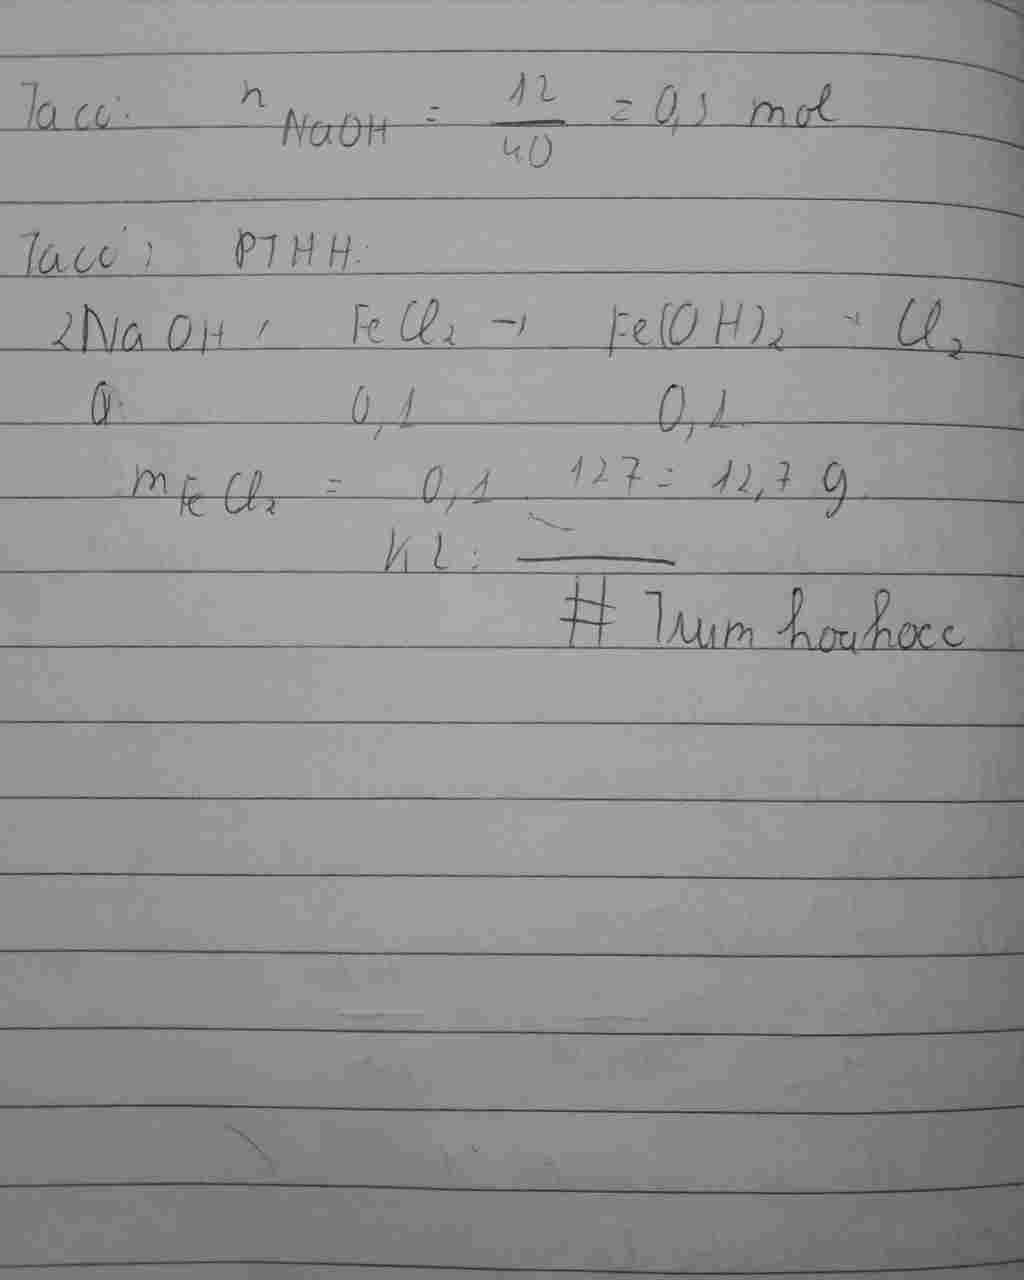 Ta có: n NaOH = 12/40 = 0,3 mol
Ta có: PTHH:
2NaOH + FeCl2 → Fe(OH)2 + Cl2
0,1 0,1
mFeCl2 = 0,1 . 127 = 12,7 g
KL:
# Trum hoa hocc